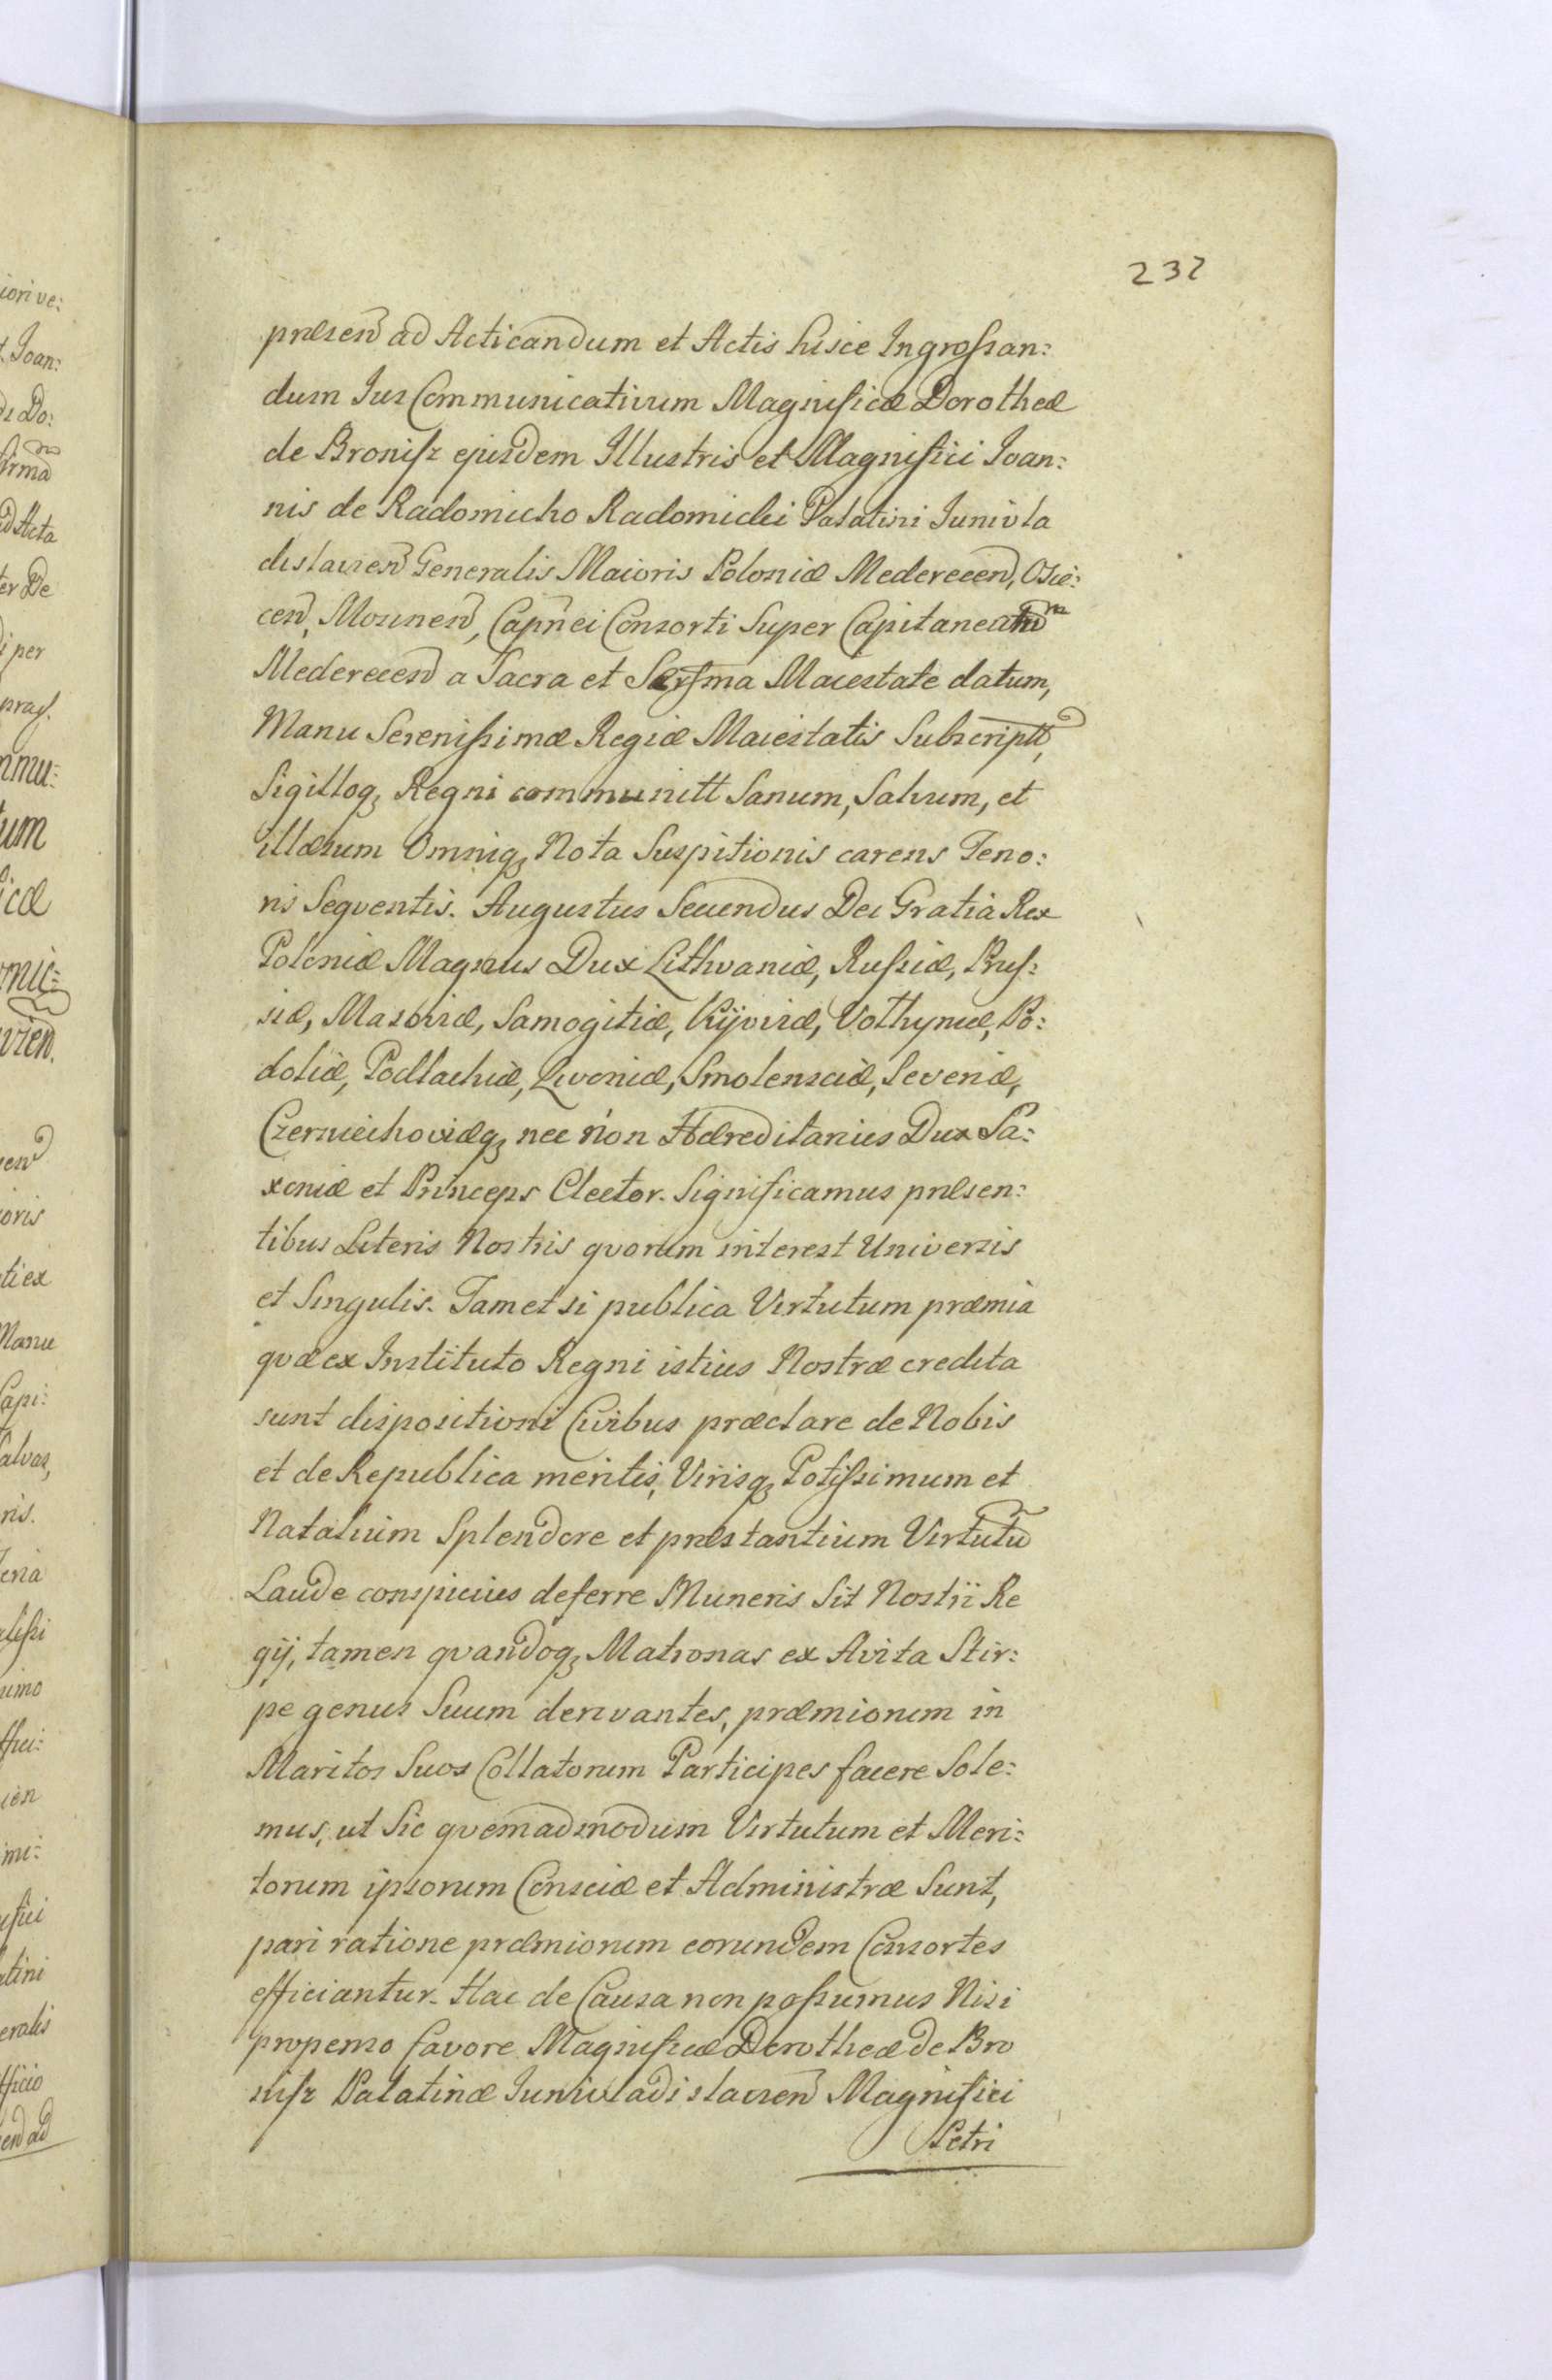 232
præsen ad Acticandum et Actis hisce Ingrossan:
dum Jus Communicativum Magnificæ Dorotheæ
de Bronisz ejusdem Illustris et Magnifici Joan:
nis de Radomicko Radomicki Palatini Junivla
dislavien Generalis Maioris Poloniæ Mederecen, Osie:
cen, Mosinen, Capnei Consorti Super Capitaneatum
Mederecen a Sacra et Serssma Maiestate datum,
Manu Serenissimæ Regiæ Maiestatis Subscriptt,
Sigilloq, Regni communitt Sanum, Salvum, et
illæsum Omniq, Nota Suspitionis carens Teno:
ris Seqventis. Augustus Secundus Dei Gratia Rex
Poloniæ Magnus Dux Lithvaniæ, Russiæ, Prus:
siæ, Masoviæ, Samogitiæ, Kijoviæ, Volhyniæ, Po:
doliæ, Podlachiæ, Livoniæ, Smolensciæ, Severiæ,
Czerniechoviæq, nec non Hæreditarius Dux Sa:
xoniæ et Princeps Elector. Significamus præsen:
tibus Literis Nostris qvorum interest Universis
et Singulis. Tametsi publica Virtutum præmia
qvæ ex Instituto Regni istius Nostræ credita
sunt dispositioni Civibus præclare de Nobis
et de Republica meritis, Virisq, Potissimum et
Natalium Splendore et præstantium Virtutu
Laude conspicuis deferre Muneris Sit Nostri Re
gij, tamen qvandoq, Matronas ex Avita Stir:
pe genus Suum derivantes, præmiorum in
Maritos Suos Collatorum Participes facere Sole:
mus, ut Sic qvemadmodum Virtutum et Meri:
torum ipsorum Consciæ et Administræ Sunt,
pari ratione præmiorum eorundem Consortes
efficiantur. Hac de Causa non possumus Nisi
propenso favore Magnificæ Dorotheæ de Bro
nisz Palatinæ Junivladislavien Magnifici
Petri